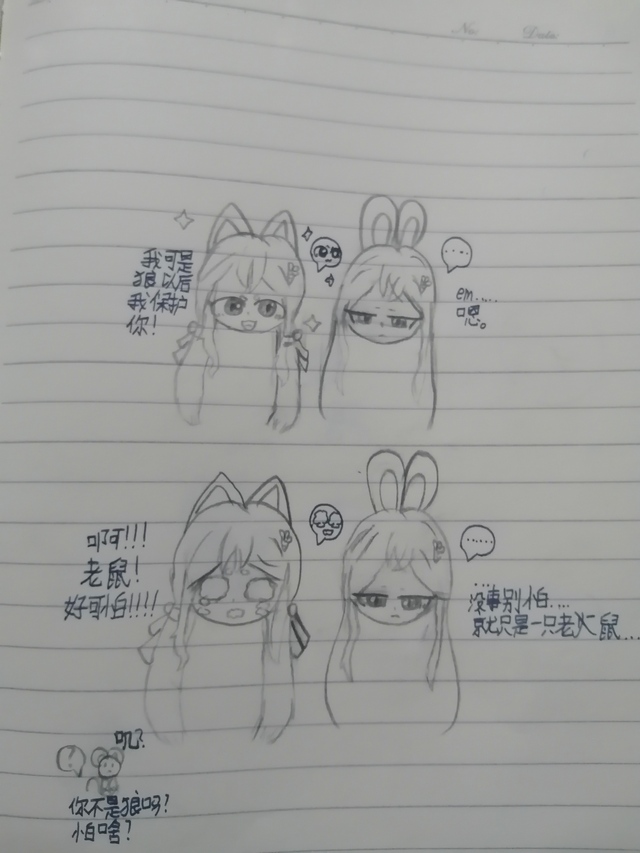 No.
Date
我可是
狼以后
我保护
你！
em.....
嗯。
啊!!!
老鼠！
好可怕!!!!
没事别怕....
就只是一只老鼠...
叽?
?
你不是狼吗？
怕啥？